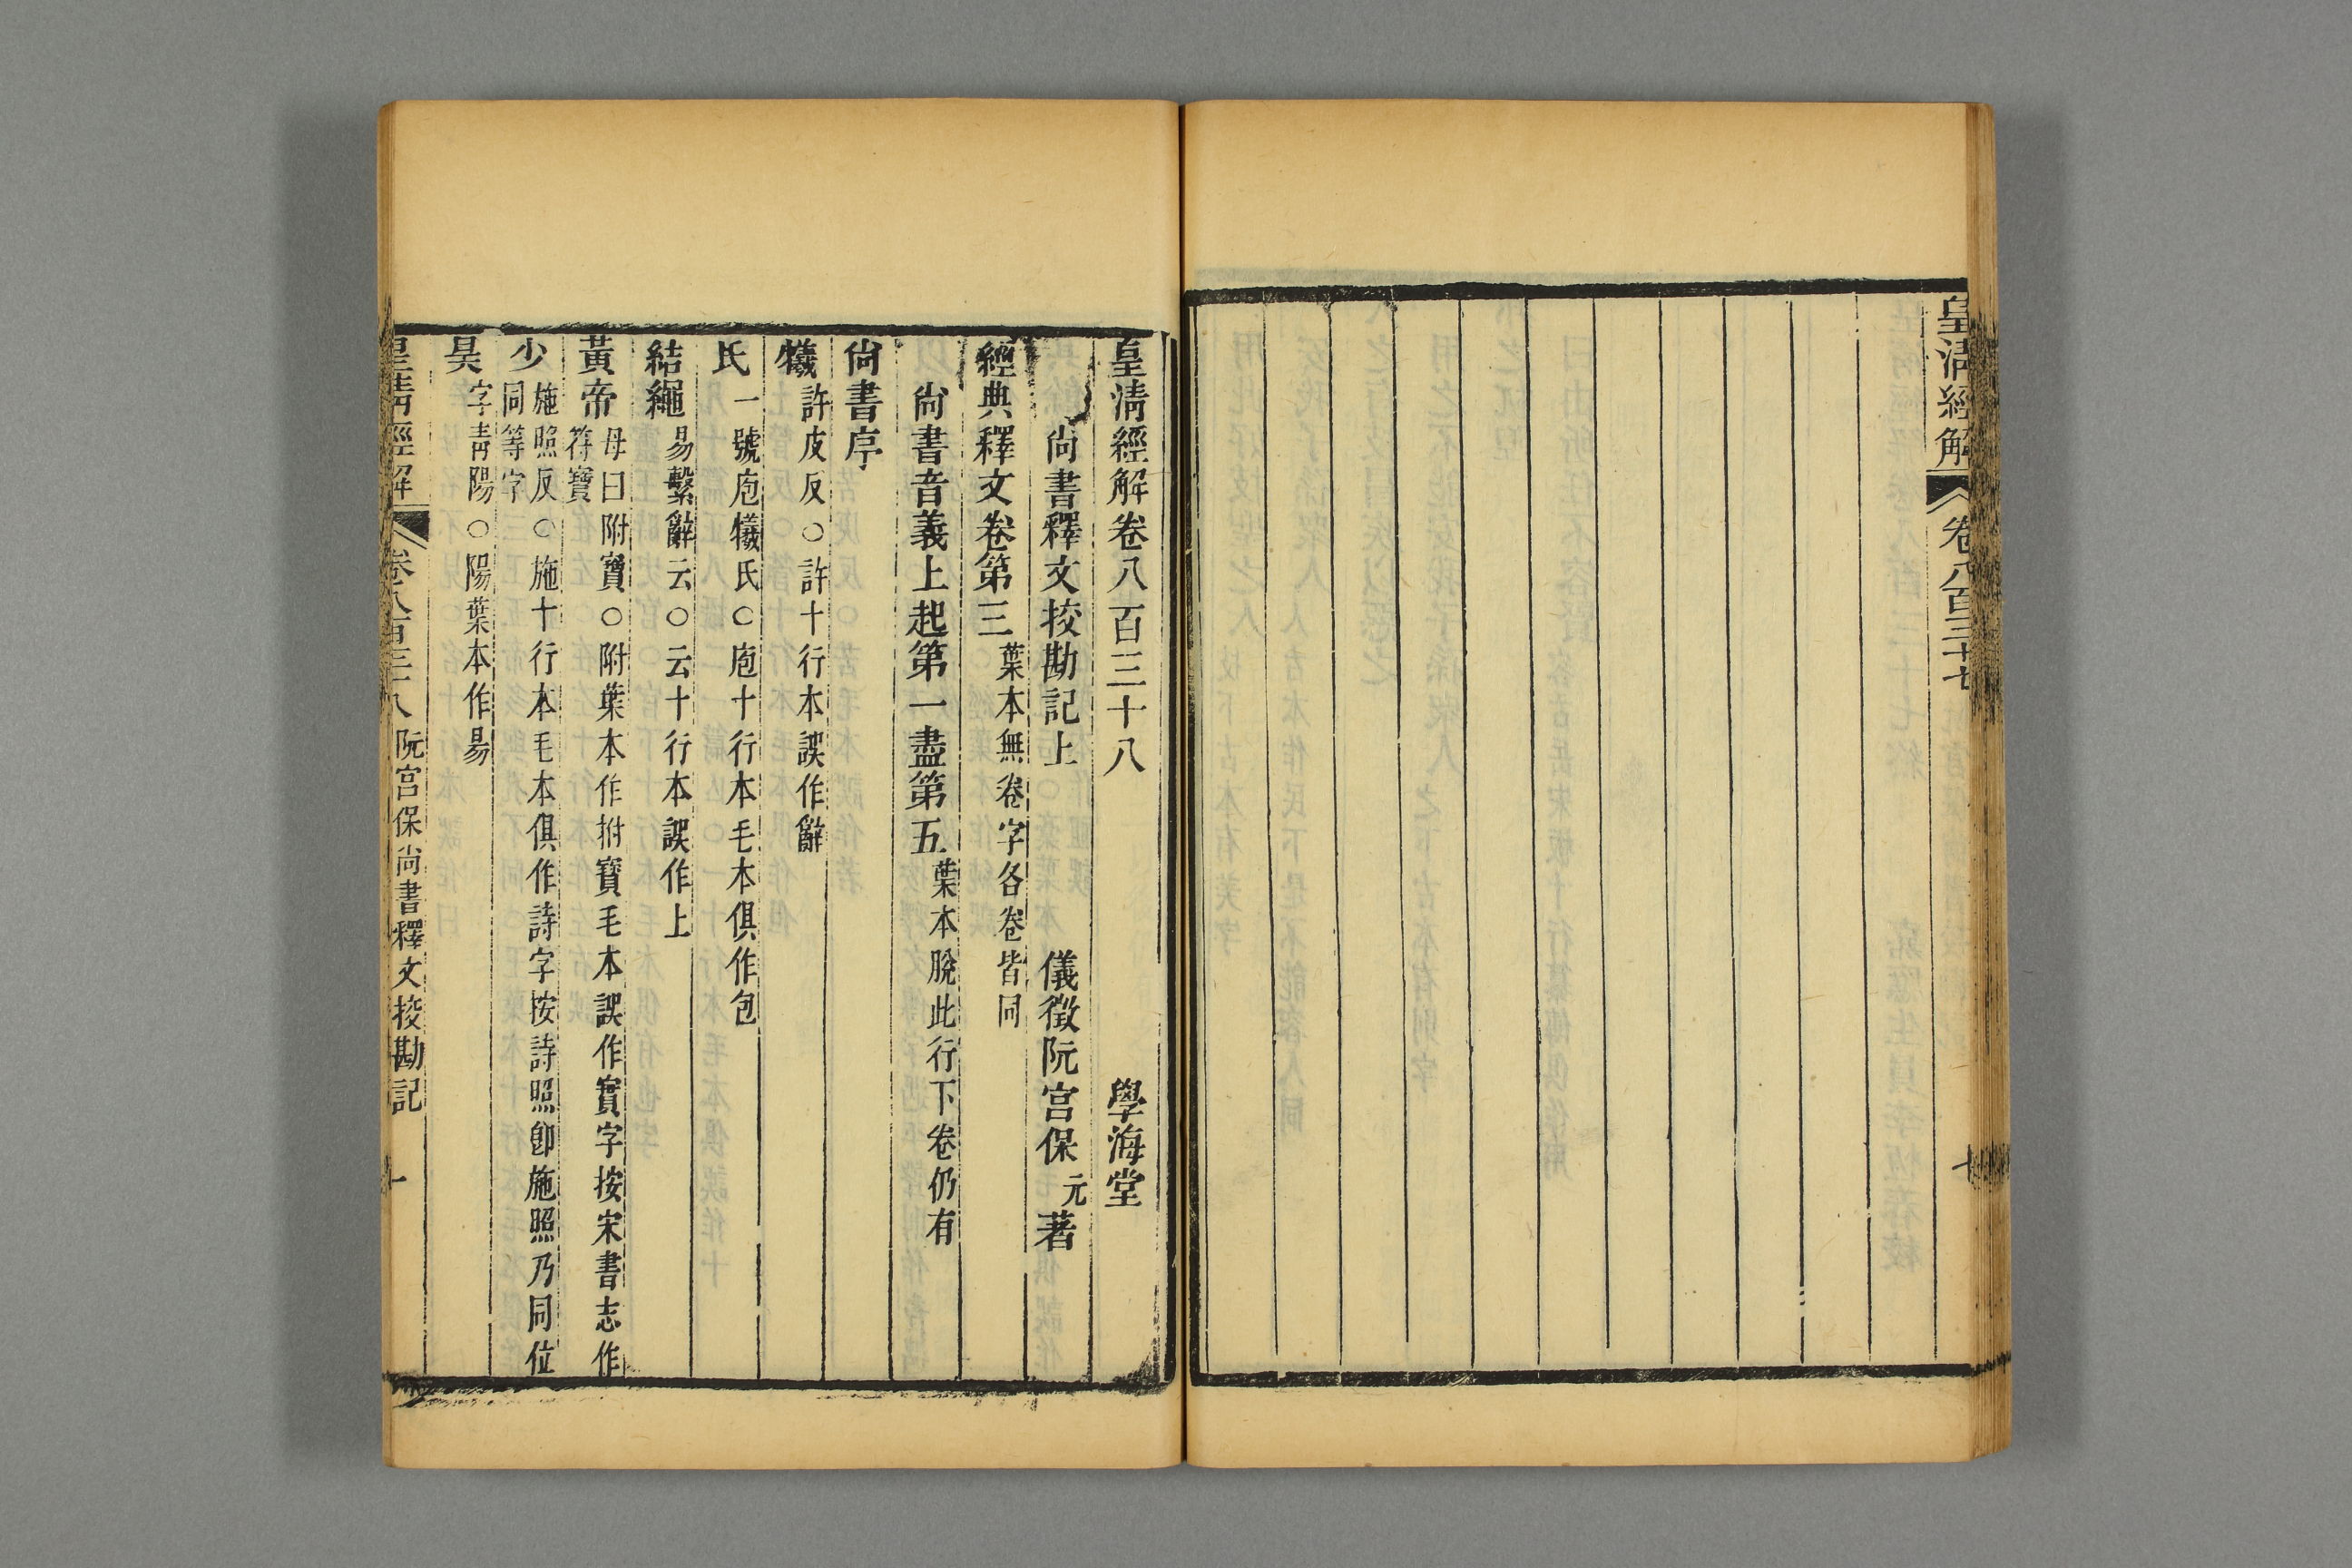 皇清經解 卷八百三十七 七
皇清經解卷八百三十八 學海堂
尚書釋文挍勘記上 儀徵阮宮保元著
經典釋文卷第三葉本無卷字各卷皆同
尚書音義上起第一盡第五葉本脫此行下卷仍有
尚書序
犧許皮反○許十行本誤作辭
氏一號庖犧氏○庖十行本毛本俱作包
結繩易繫辭云○云十行本誤作上
黃帝母曰附寶○附葉本作拊寶毛本誤作實字按宋書志作
符寶
少施照反○施十行本毛本俱作詩字按詩照卽施照乃同位
同等字
昊字靑陽○陽葉本作昜
皇清經解 卷八百三十八 阮宮保尚書釋文挍勘記 一